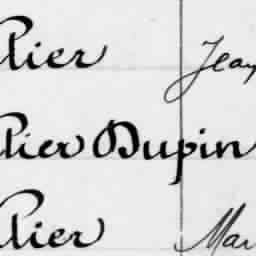 lier Jean
lier Dupin
lier Mar